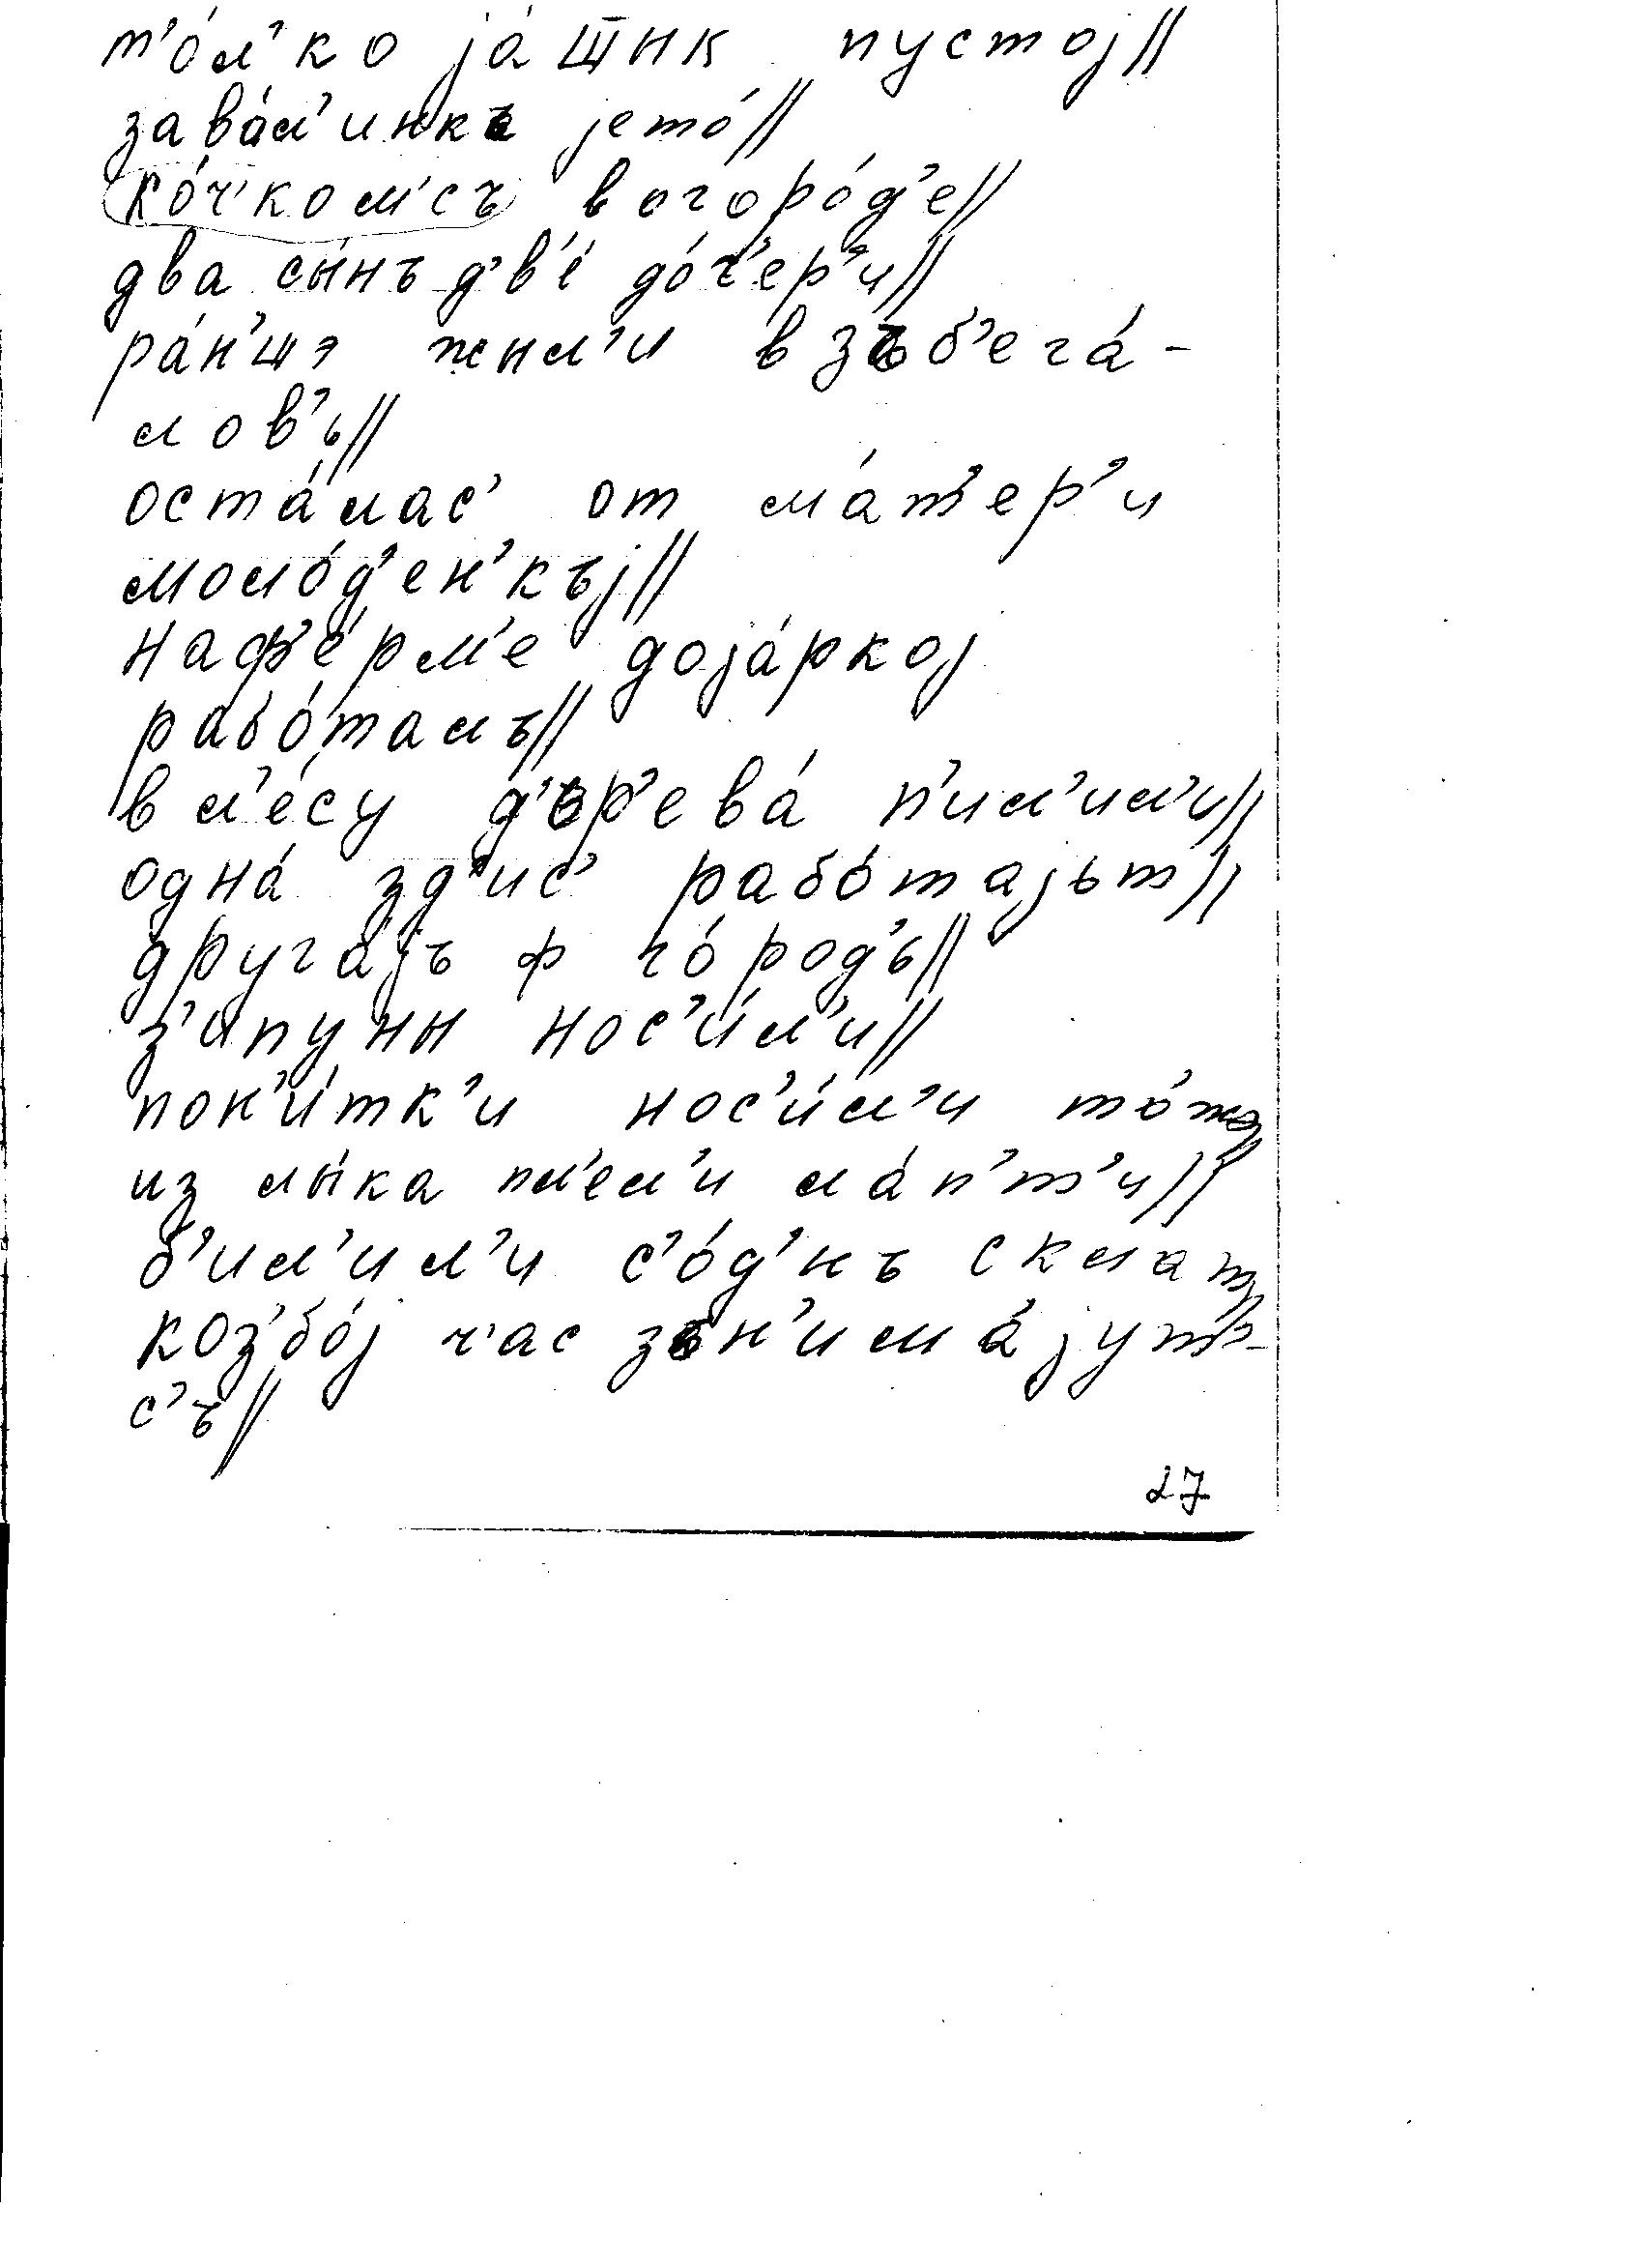 т’о́л’ко jа́ш̅ик пустоj//
зава́л’инкъ jето́//
ко́ч’комс’ъ в огоро́д’е//
два сы́нъ д’в’е́ до́ч’ер’и//
ра́н’шэ жыл’и в зъб’ега́-
лов’ь//
оста́лас’ от ма́т’ер’и
моло́д’ен’къj//
на ф’е́рм’е доjа́ркоj
рабо́талъ//
в л’е́су д’ьр’ева́ п’ил’ил’и//
одна́ зд’ис’ рабо́таjьт//
друга́jъ ф го́род’ь//
з’ипуны нос’и́л’и//
пон’и́тк’и нос’и́л’и то́жэ
из лы́ка пл’ел’и ла́п’т’и//
б’ил’ил’и с’о́д’нъ склат
коз’бо́j ч’ас зън’има́jут-
с’ъ//
27